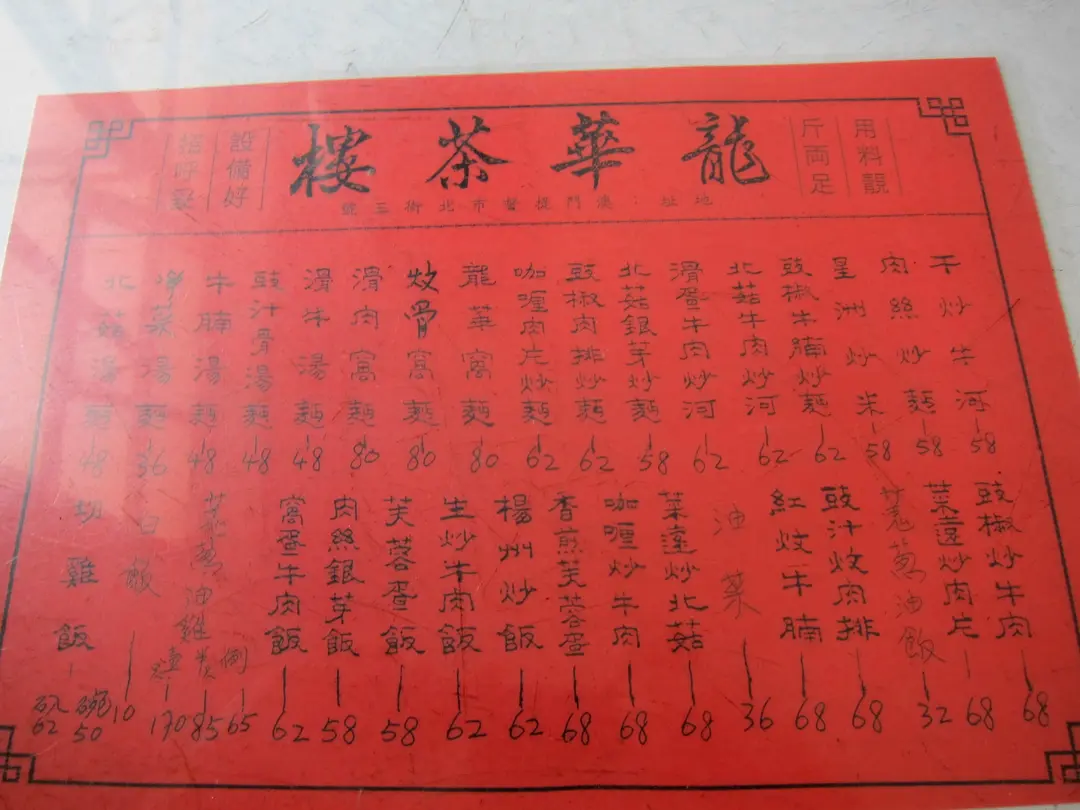 用料靚
斤両足
龍華茶樓
設備好
招呼妥
地址：澳門提督市北街三號
干炒牛河 58
肉絲炒麵 58
星洲炒米 58
豉椒牛腩炒麵 62
北菇牛肉炒河 62
滑蛋牛肉炒河 62
北菇銀芽炒麵 58
豉椒肉排炒麵 62
咖喱肉片炒麵 62
龍華窩麵 80
炆骨窩麵 80
滑肉窩麵 80
滑牛湯麵 48
豉汁骨湯麵 48
牛腩湯麵 48
菜湯麵 36
北菇湯麵 48
豉椒炒牛肉 68
菜遠炒肉片 68
羌葱油飯 32
豉汁炆肉排 68
紅炆牛腩 68
油菜 36
菜遠炒北菇 68
咖喱炒牛肉 68
香煎芙蓉蛋 68
楊州炒飯 62
生炒牛肉飯 62
芙蓉蛋飯 58
肉絲銀芽飯 58
窩蛋牛肉飯 62
羌葱油雞
例 65
半 85
壹 170
白飯 10
切雞飯
碗 50
62